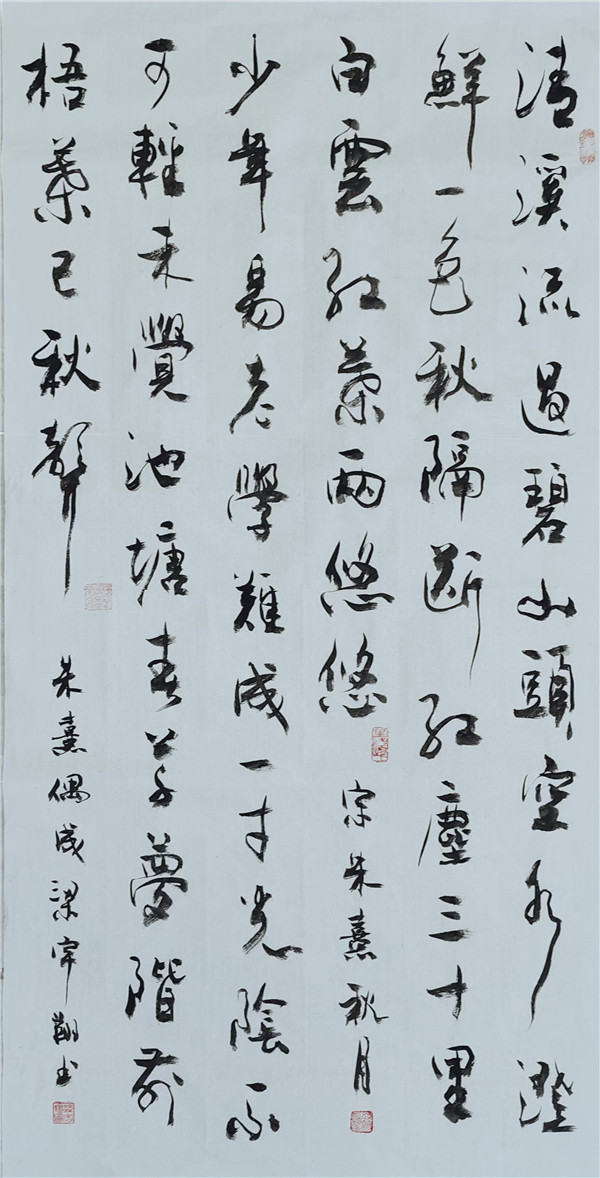 清溪流過碧山頭空水澄
鮮一色秋隔斷紅塵三十里
白雲紅葉兩悠悠 宋朱熹秋月
少年易老學難成一寸光陰不
可輕未覺池塘春草夢階前
梧葉已秋聲 朱熹偶成 梁书